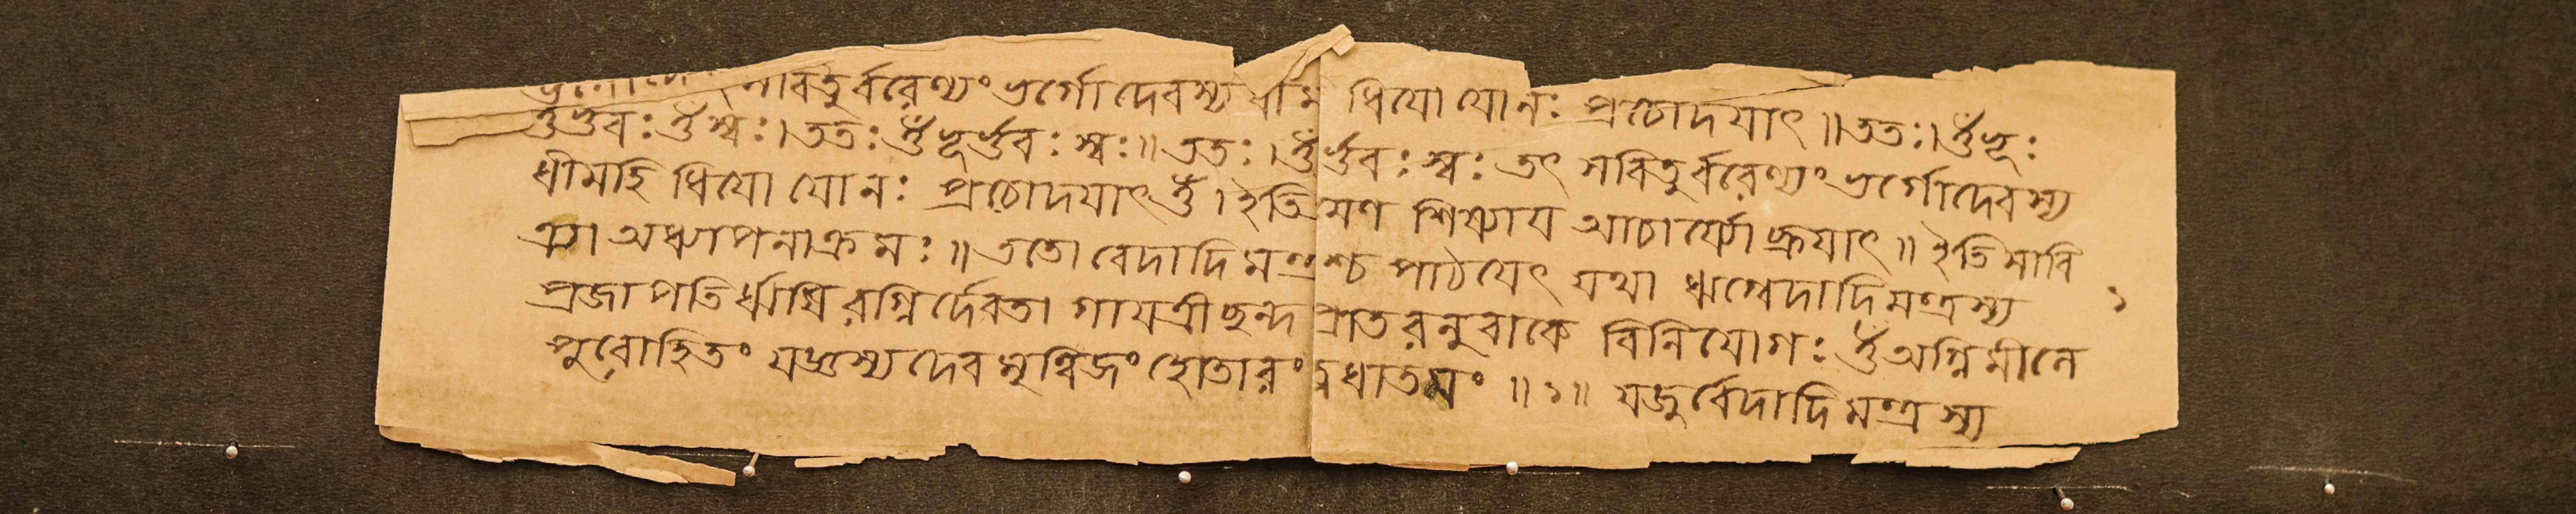 সবিতুর্বরেণ্যং ভর্গোদেবস্য ধীম ধিযো যোনঃ প্রচোদযাৎ ॥ ততঃ। ওঁ ভূঃ
ওঁ ভুবঃ ওঁ স্বঃ। ততঃ ওঁ ভূর্ভুবঃ স্বঃ॥ ততঃ। ওঁ র্ভুবঃ স্বঃ তৎ সবিতুর্বরেণ্যং ভর্গোদেবস্য
ধীমহি ধিযো যোনঃ প্রচোদযাৎ ওঁ। ইতি শিষ্যায আচার্য্যো ব্রূযাৎ ॥ ইতি সাবি
ত্র্যা অধ্যাপনাক্রমঃ ॥ ততো বেদাদি মন্ত্রশ্চ পাঠযেৎ যথা ঋগ্বেদাদি মন্ত্রস্য ১
প্রজাপতির্ঋষিরগ্নির্দেবতা গাযত্রী ছন্দ প্রাতরনুবাকে বিনিযোগঃ ওঁ অগ্নিমীলে
পুরোহিতং যজ্ঞস্য দেবমৃত্বিজং হোতারং ধাতমং ॥ ১॥ যজুর্বেদাদি মন্ত্রস্য